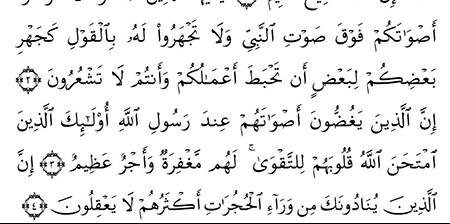 أَصْوَٰتَكُمْ فَوْقَ صَوْتِ ٱلنَّبِىِّ وَلَا تَجْهَرُوا۟ لَهُۥ بِٱلْقَوْلِ كَجَهْرِ
بَعْضِكُمْ لِبَعْضٍ أَن تَحْبَطَ أَعْمَـٰلُكُمْ وَأَنتُمْ لَا تَشْعُرُونَ ﴿٢﴾
إِنَّ ٱلَّذِينَ يَغُضُّونَ أَصْوَٰتَهُمْ عِندَ رَسُولِ ٱللَّهِ أُو۟لَـٰٓئِكَ ٱلَّذِينَ
ٱمْتَحَنَ ٱللَّهُ قُلُوبَهُمْ لِلتَّقْوَىٰ ۚ لَهُم مَّغْفِرَةٌ وَأَجْرٌ عَظِيمٌ ﴿٣﴾ إِنَّ
ٱلَّذِينَ يُنَادُونَكَ مِن وَرَآءِ ٱلْحُجُرَٰتِ أَكْثَرُهُمْ لَا يَعْقِلُونَ ﴿٤﴾